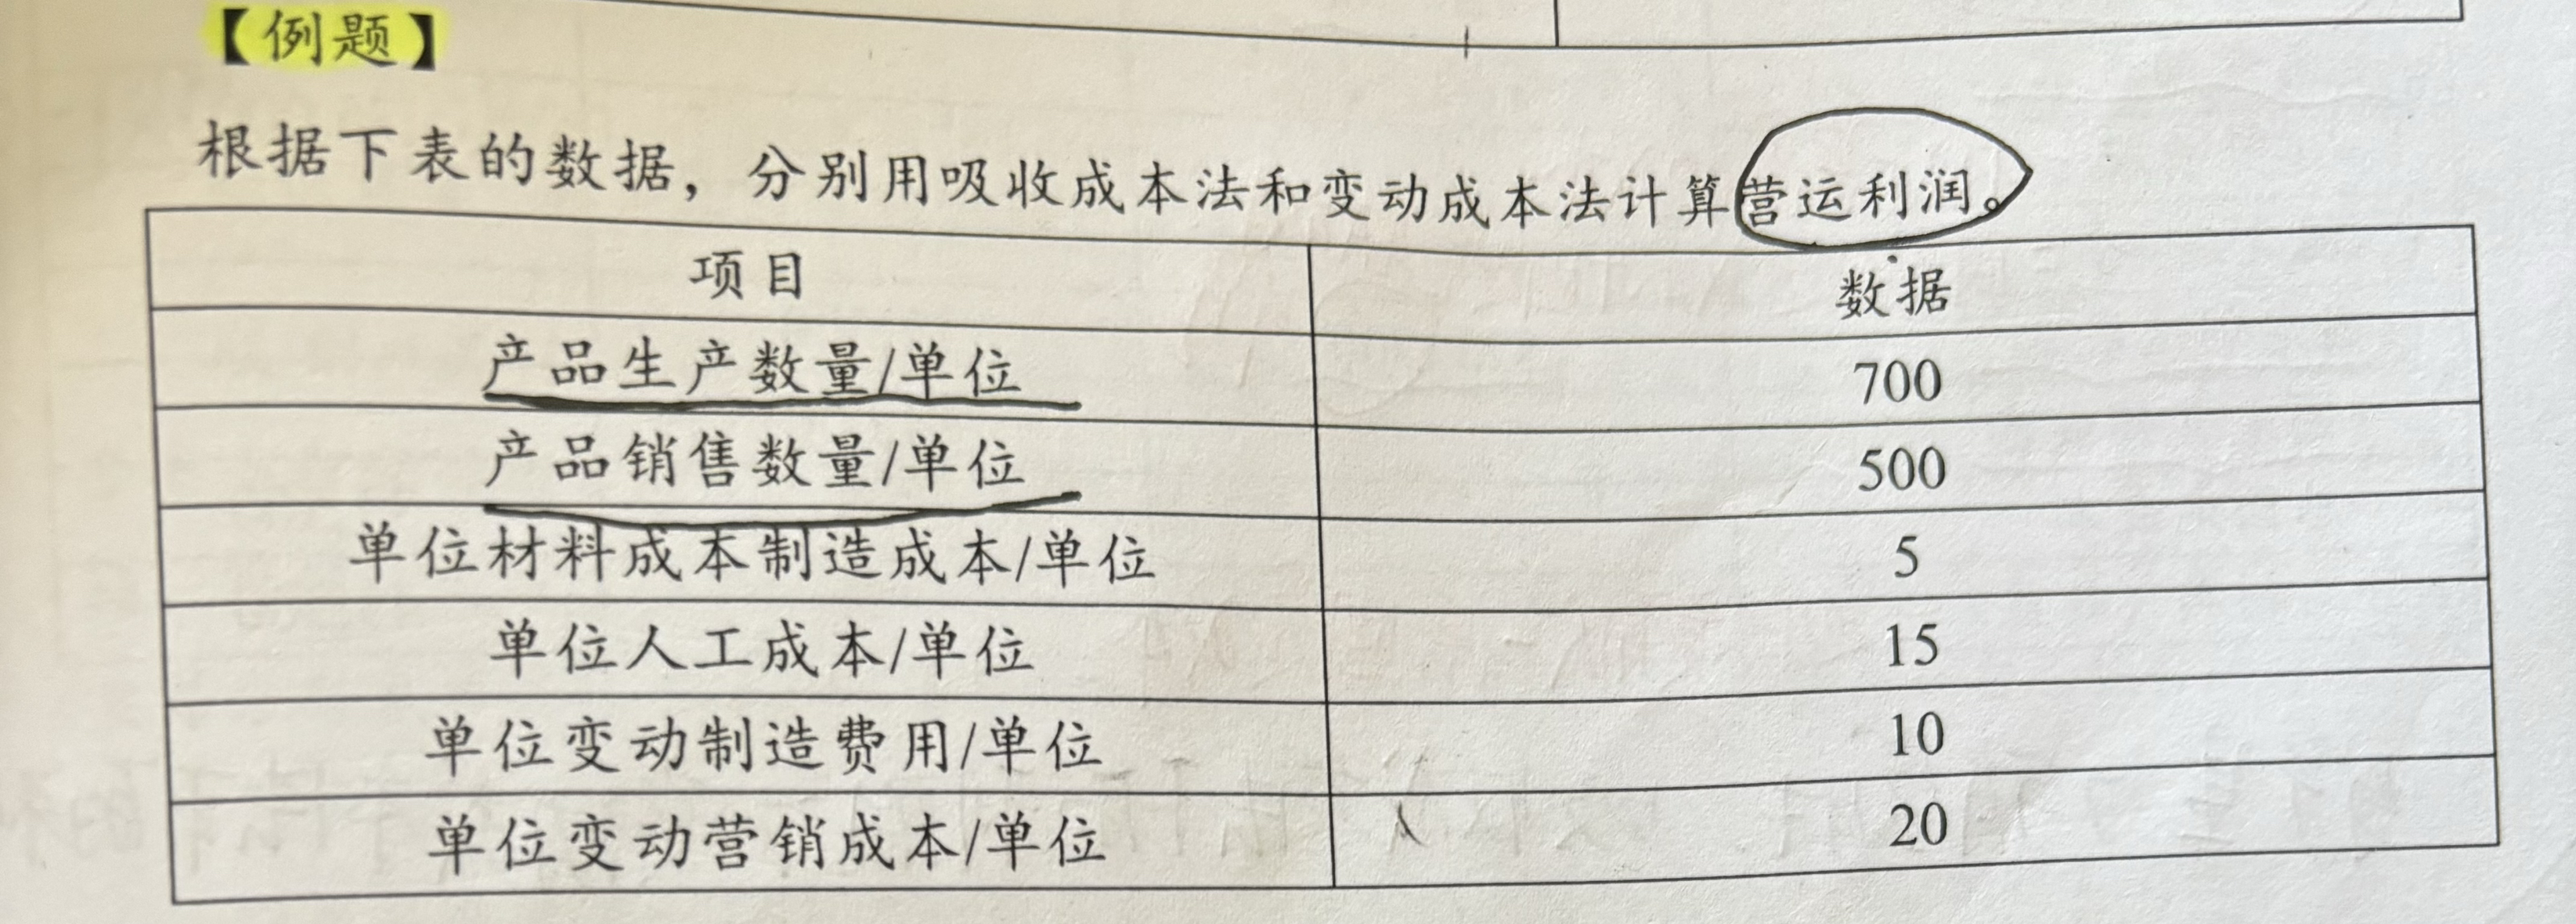 【例题】
根据下表的数据，分别用吸收成本法和变动成本法计算营运利润。
项目 数据
产品生产数量/单位 700
产品销售数量/单位 500
单位材料成本制造成本/单位 5
单位人工成本/单位 15
单位变动制造费用/单位 10
单位变动营销成本/单位 20